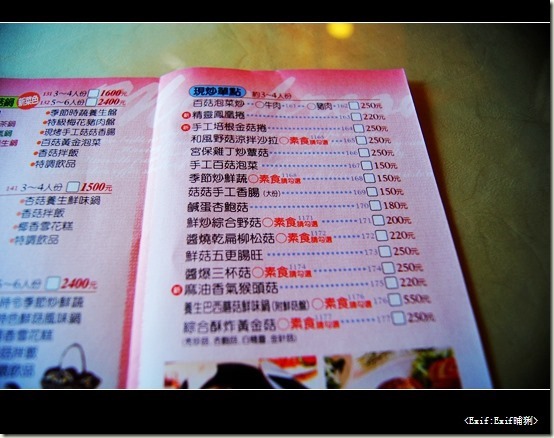 現炒單點 約3~4人份
百菇泡菜炒 ○牛肉 161 ○豬肉 162 250元
精靈鳳凰捲 163 220元
新 手工培根金菇捲 164 250元
和風野菇涼拌沙拉 ○素食請勾選 1165 165 250元
宮保雞丁炒蕈菇 166 250元
手工百菇泡菜 167 150元
季節炒鮮蔬 ○素食請勾選 1168 168 150元
菇菇手工香腸(大份) 169 150元
鹹蛋杏鮑菇 170 180元
鮮炒綜合野菇 ○素食請勾選 1171 171 200元
醬燒乾扁柳松菇 ○素食請勾選 1172 172 220元
鮮菇五更腸旺 173 250元
醬爆三杯菇 ○素食請勾選 1174 174 250元
新 麻油香氣猴頭菇 175 220元
養生巴西蘑菇鮮味鍋(附鮮菇盤) ○素食請勾選 1176 176 550元
綜合酥炸黃金菇 ○素食請勾選 1177 177 250元
菇鍋 新菜色
131 3~4人份 1600元
132 5~6人份 2400元
•季節時蔬養生盤
•特級梅花豬肉盤
•現烤手工菇菇香腸
•百菇黃金泡菜
•香菇拌飯
•特調飲品
141 3~4人份 1500元
•杏菇養生鮮味鍋
•香菇拌飯
•椰香雪花糕
•特調飲品
5~6人份 2400元
季節炒鮮蔬
鮮菇風味鍋
香菇拌飯
椰香雪花糕
特調飲品
<Exif:Exif晡猁>